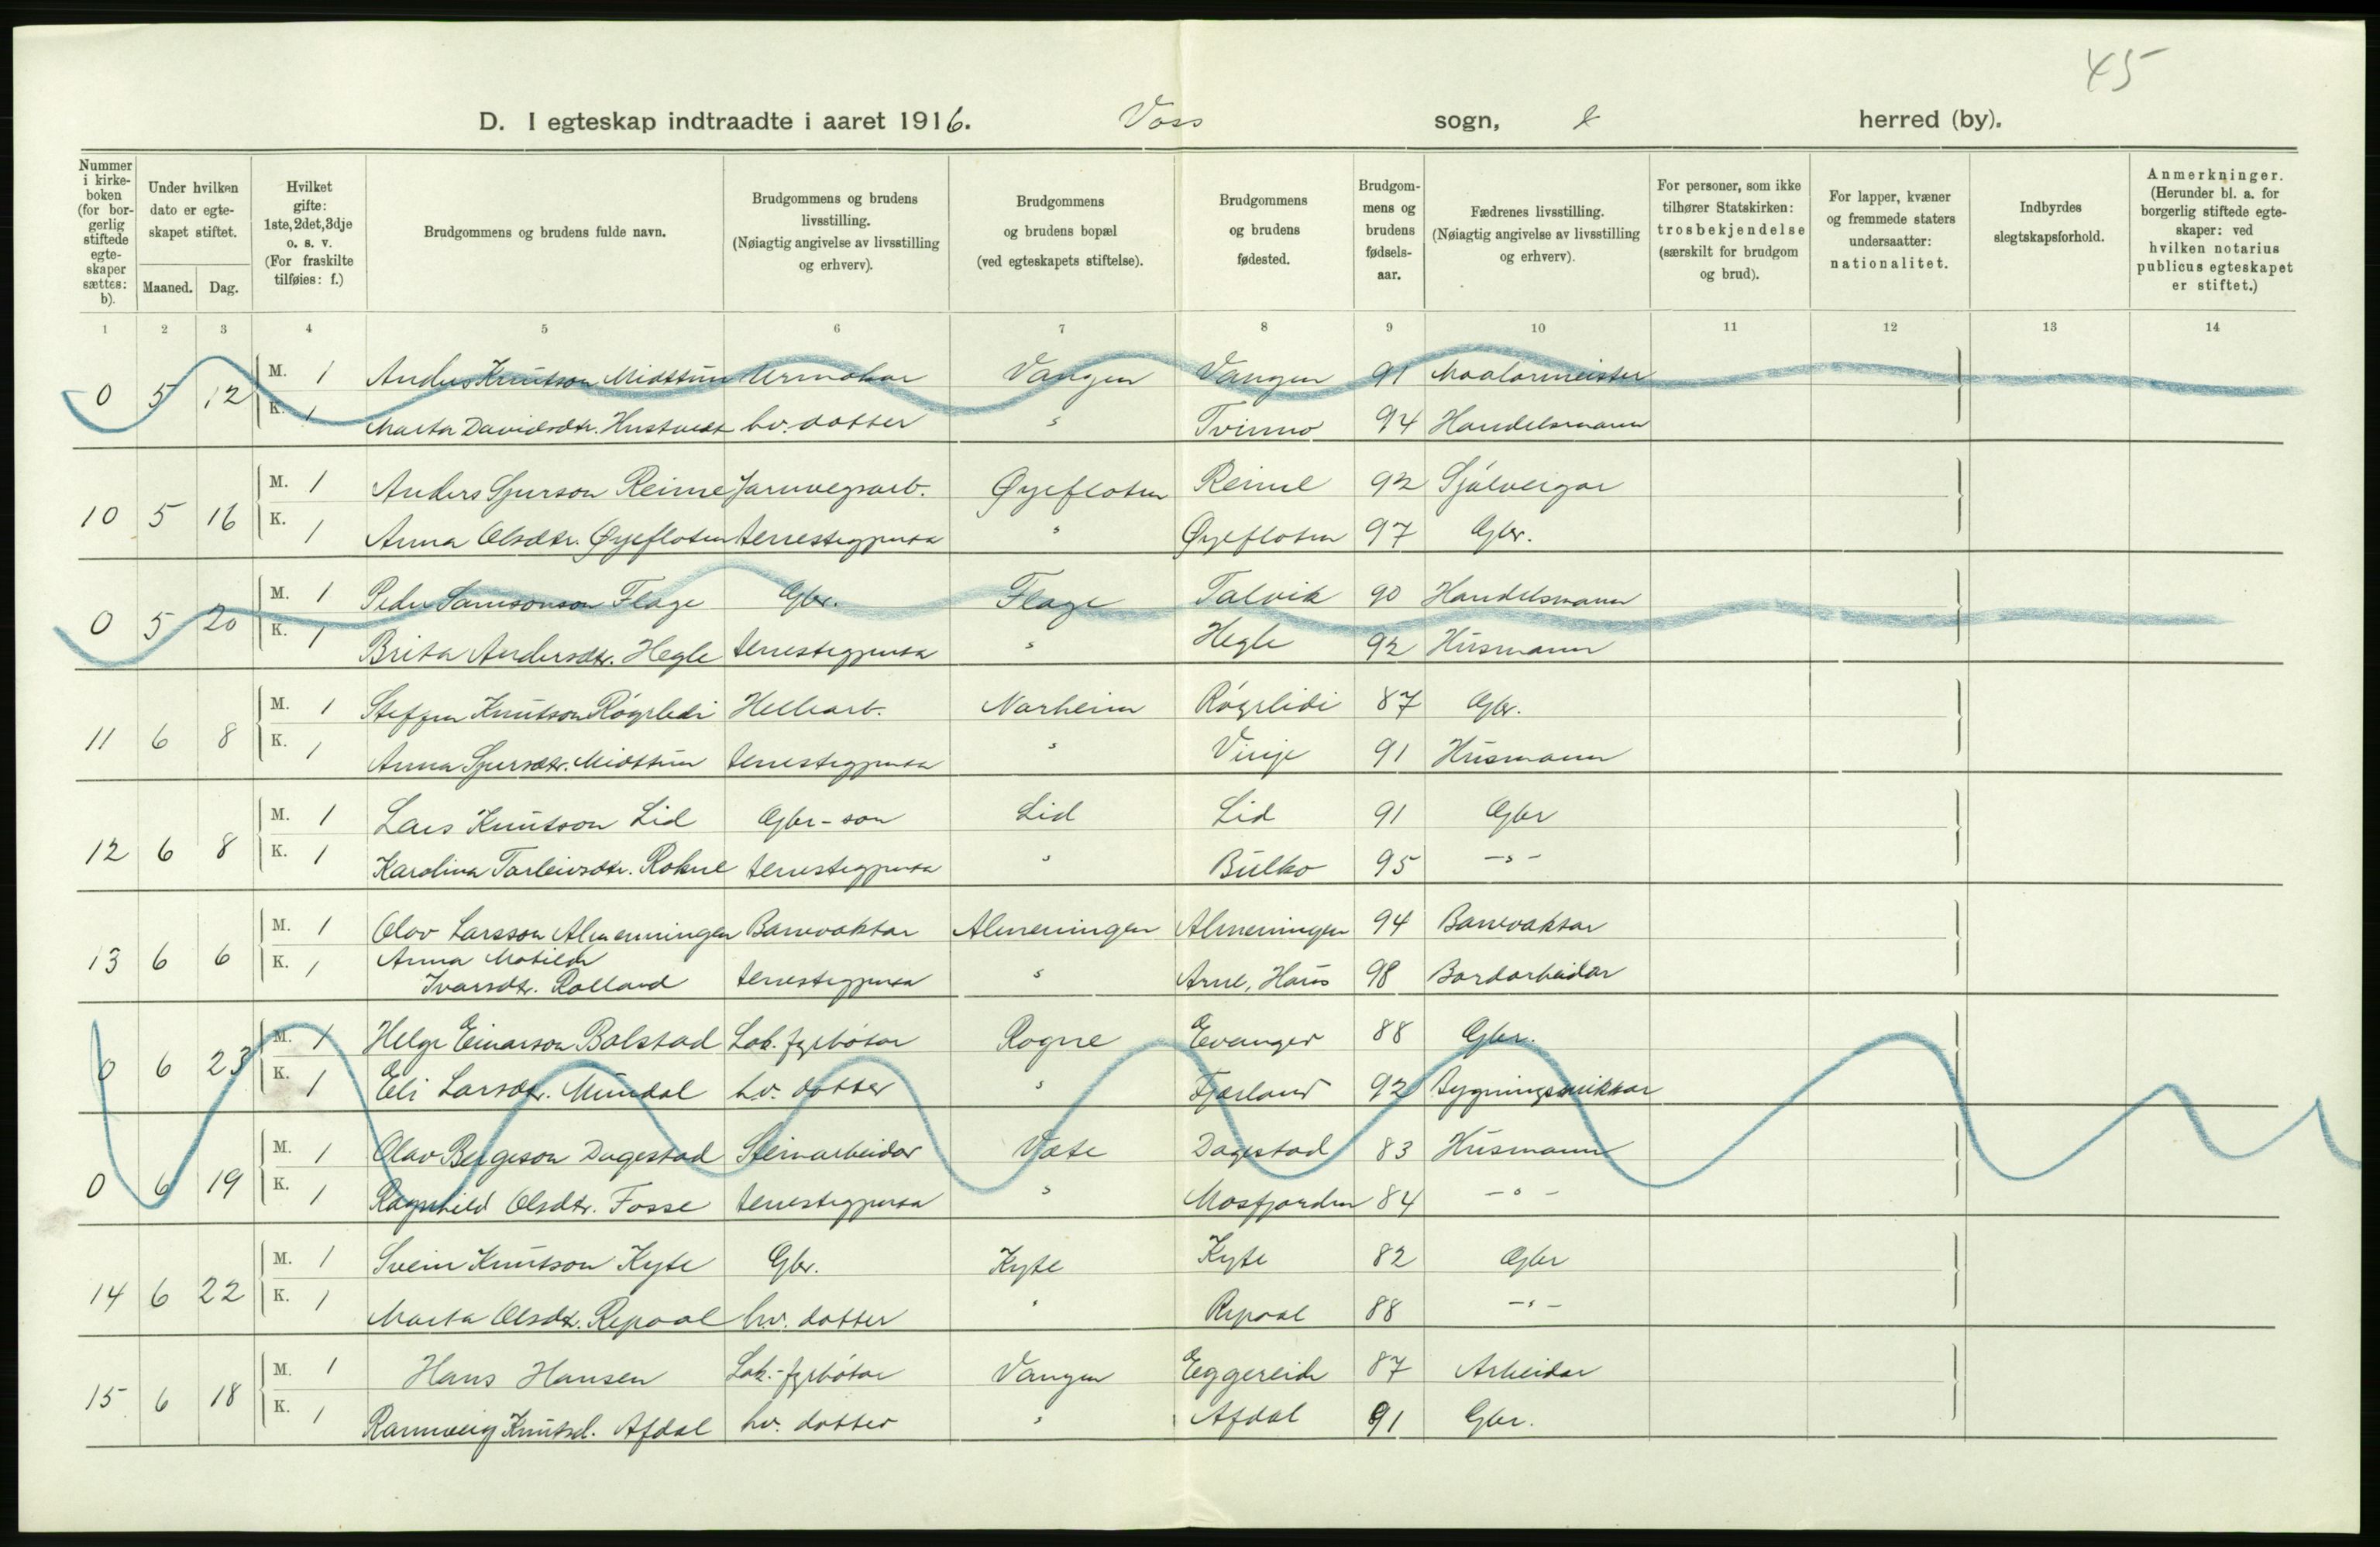 45
D. I egteskap indtraadte i aaret 1916. Voss sogn, herred (by).
Nummer i kirkeboken (for borgerlig stiftede egteskaper sættes: b).
Under hvilken dato er egteskapet stiftet.
Maaned. Dag.
Hvilket gifte: 1ste, 2det, 3dje o. s. v. (For fraskilte tilføies: f.)
Brudgommens og brudens fulde navn.
Brudgommens og brudens livsstilling. (Nøiagtig angivelse av livsstilling og erhverv).
Brudgommens og brudens bopæl (ved egteskapets stiftelse).
Brudgommens og brudens fødested.
Brudgommens og brudens fødselsaar.
Fædrenes livsstilling. (Nøiagtig angivelse av livsstilling og erhverv).
For personer, som ikke tilhører Statskirken: trosbekjendelse (særskilt for brudgom og brud).
For lapper, kvæner og fremmede staters undersaatter: nationalitet.
Indbyrdes slegtskapsforhold.
Anmerkninger. (Herunder bl. a. for borgerlig stiftede egteskaper: ved hvilken notarius publicus egteskapet er stiftet.)
1 2 3 4 5 6 7 8 9 10 11 12 13 14
0 5 12 M. 1 Anders Knutson Midttun Urmakar Vangen Vangen 91 Maalarmeister
K. 1 Marta Davidsdtr. Hustvedt hv. dotter " Tvinno 94 Handelsmann
10 5 16 M. 1 Anders Sjurson Reime Jarnvegsarb. Øyefloten Reime 92 Sjølveigar
K. 1 Anna Olsdtr. Øyefloten tenestegjenta " Øyefloten 97 Gbr.
0 5 20 M. 1 Peder Samsonson Flage Gbr. Flage Talvik 90 Handelsmann
K. 1 Brita Andersdtr. Hegle tenestegjenta " Hegle 92 Husmann
11 6 8 M. 1 Steffen Knutson Røgrlidi Hellearb. Narheim Røgrlidi 87 Gbr.
K. 1 Anna Sjursdtr. Midttun tenestegjenta " Vinje 91 Husmann
12 6 8 M. 1 Lars Knutson Lid Gbr-son Lid Lid 91 Gbr
K. 1 Karolina Torleivsdtr. Rokne tenestegjenta " Bulko 95 - " -
13 6 6 M. 1 Olav Larsson Almenningen Banevaktar Almenningen Almenningen 94 Banevaktar
K. 1 Anna Matilde
Ivarsdtr. Rolland tenestegjenta " Arne, Haus 98 Bordarbeidar
0 6 23 M. 1 Helge Einarson Bolstad Lok. fyrbøtar Rogne Evanger 88 Gbr.
K. 1 Eli Larsdtr. Mundal hv. dotter " Fjærland 92 Bygningsmikkar
0 6 19 M. 1 Olav Bergeson Dagestad Steinarbeidar Væte Dagestad 83 Husmann
K. 1 Ragnhild Olsdtr. Fosse tenestegjenta " Mosfjorden 84 - " -
14 6 22 M. 1 Svein Knutson Kyte Gbr. Kyte Kyte 82 Gbr
K. 1 Marta Olsdtr. Repaal hv. dotter " Repaal 88 - " -
15 6 18 M. 1 Hans Hansen Lok.-fyrbøtar Vangen Eggereide 87 Arbeidar
K. 1 Rannveig Knutsd. Afdal hv. dotter " Afdal 91 Gbr.